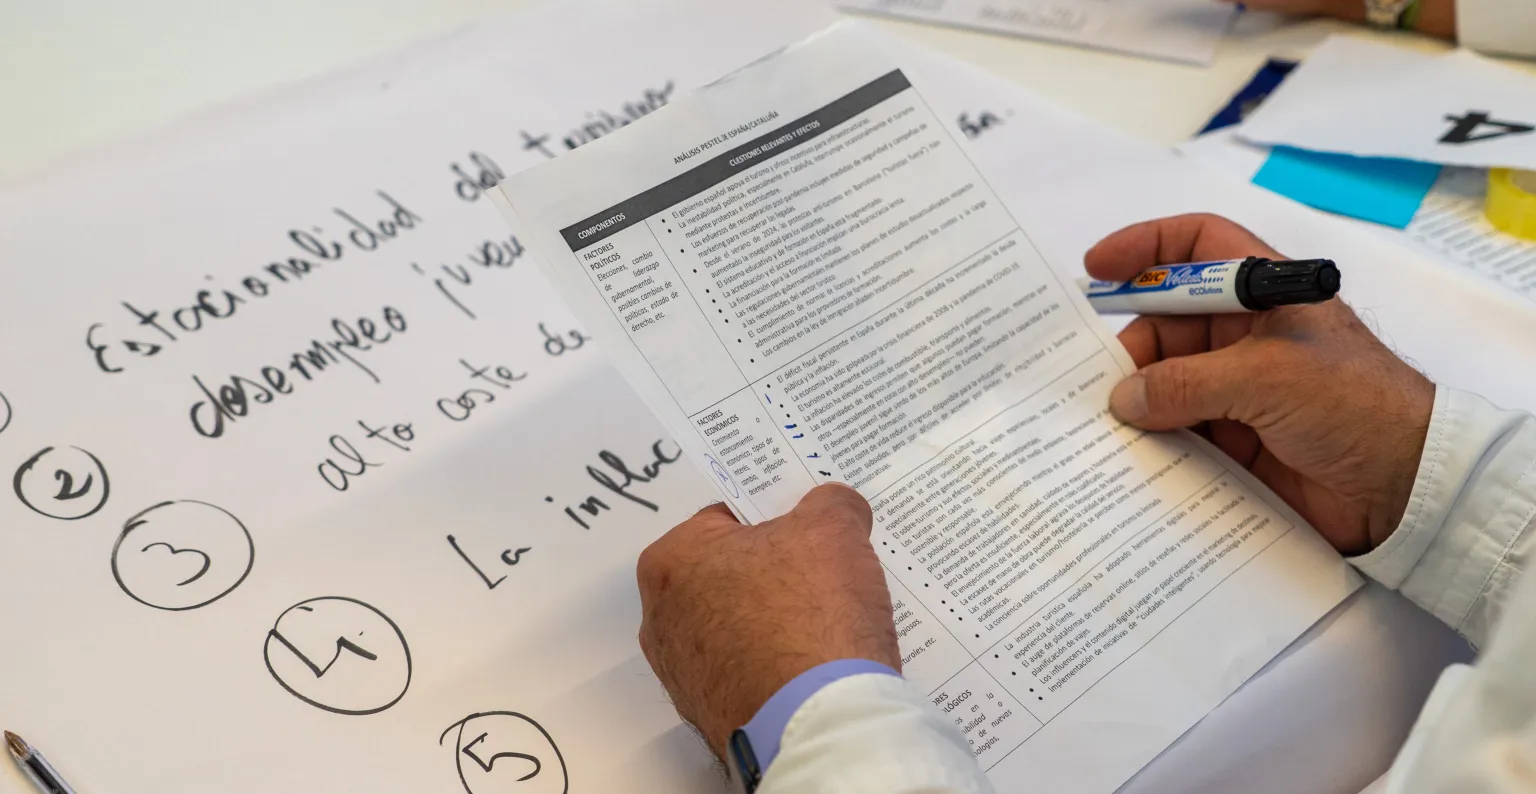 Estacionalidad del turismo
desempleo juven
alto coste de
La inflac
ón.
2
3
4
5
4
BIC Velleda
ecolutions
ANÁLISIS PESTEL DE ESPAÑA/CATALUÑA
COMPONENTES
CUESTIONES RELEVANTES Y EFECTOS
FACTORES
POLÍTICOS
Elecciones, cambio
de liderazgo
gubernamental,
posibles cambios de
políticas, estado de
derecho, etc.
• El gobierno español apoya el turismo y ofrece incentivos para infraestructuras.
• La inestabilidad política, especialmente en Cataluña, interrumpe ocasionalmente el turismo
mediante protestas e incertidumbre.
• Los esfuerzos de recuperación post-pandemia incluyen medidas de seguridad y campañas de
marketing para recuperar las llegadas.
• Desde el verano de 2024, las protestas anti-turismo en Barcelona ("turistas fuera") han
aumentado la inseguridad para los visitantes.
• El sistema educativo y de formación en España está fragmentado.
• La acreditación y el acceso a financiación implican una burocracia lenta.
• La financiación para la formación es limitada.
• Las regulaciones gubernamentales mantienen los planes de estudio desactualizados respecto
a las necesidades del sector turístico.
• El cumplimiento de normas de licencias y acreditaciones aumenta los costes y la carga
administrativa para los proveedores de formación.
• Los cambios en la ley de inmigración añaden incertidumbre.
FACTORES
ECONÓMICOS
Crecimiento o
estancamiento
económico, tipos de
interés, tipos de
cambio, inflación,
desempleo, etc.
• El déficit fiscal persistente en España durante la última década ha incrementado la deuda
pública y la inflación.
• La economía ha sido golpeada por la crisis financiera de 2008 y la pandemia de COVID-19
• El turismo es altamente estacional.
• La inflación ha elevado los costes de combustible, transporte y alimentos.
• Las disparidades de ingresos permiten que algunos puedan pagar formación, mientras que
otros —especialmente en zonas con alto desempleo— no pueden.
• El desempleo juvenil sigue siendo de los más altos de Europa, limitando la capacidad de los
jóvenes para pagar formación.
• El alto coste de vida reduce el ingreso disponible para la educación.
• Existen subsidios, pero son difíciles de acceder por límites de elegibilidad y barreras
administrativas.
spaña posee un rico patrimonio cultural.
La demanda se está orientando hacia viajes experienciales, locales y de bienestar,
especialmente entre generaciones jóvenes.
El sobre-turismo y sus efectos sociales y medioambientales.
• Los turistas son cada vez más conscientes del medio ambiente, favoreciendo el
sostenible y responsable.
• La población española está envejeciendo mientras el grupo en edad laboral
provocando escasez de habilidades.
• La demanda de trabajadores en sanidad, cuidado de mayores y hostelería está en
pero la oferta es insuficiente, especialmente en roles cualificados.
• El envejecimiento de la fuerza laboral agrava los desajustes de habilidades.
• La escasez de mano de obra puede degradar la calidad del servicio.
• Las rutas vocacionales en turismo/hostelería se perciben como menos prestigiosas que las
académicas.
• La conciencia sobre oportunidades profesionales en turismo es limitada.
• La industria turística española ha adoptado herramientas digitales para mejorar la
experiencia del cliente.
• El auge de plataformas de reservas online, sitios de reseñas y redes sociales ha facilitado la
planificación de viajes.
• Los influencers y el contenido digital juegan un papel creciente en el marketing de destinos.
• Implementación de iniciativas de "ciudades inteligentes", usando tecnología para mejorar
turales, etc.
RES
LÓGICOS
os en la
nibilidad o
o de nuevas
nologías,